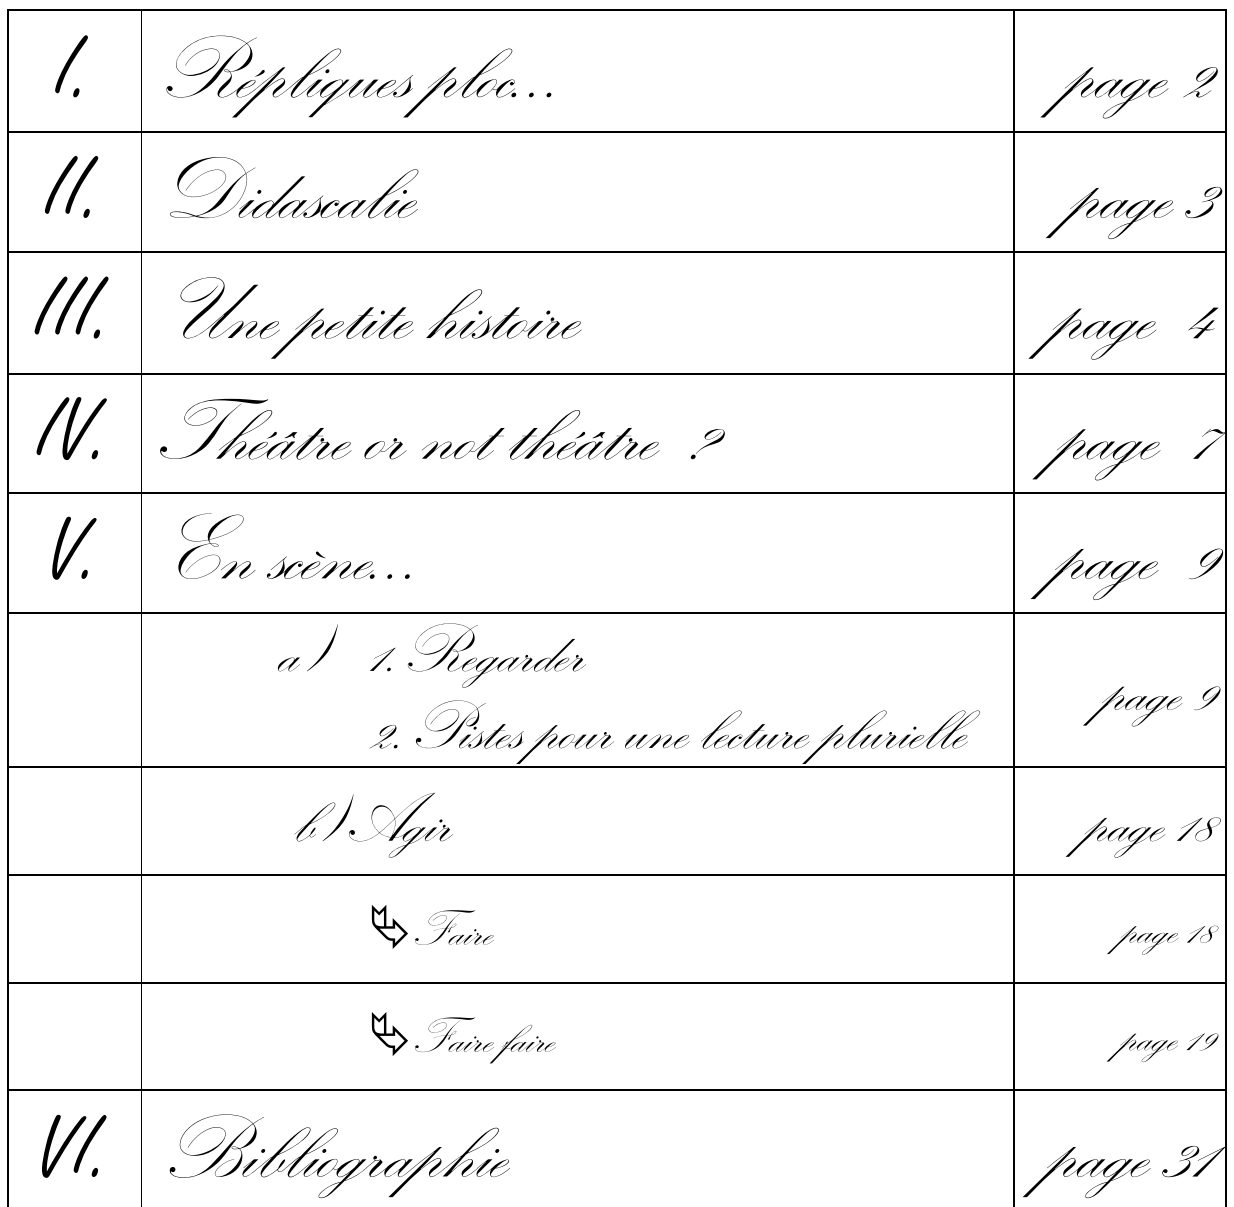 I. Répliques ploc... page 2
II. Didascalie page 3
III. Une petite histoire page 4
IV. Théâtre or not théâtre ? page 7
V. En scène... page 9
a) 1. Regarder
2. Pistes pour une lecture plurielle page 9
b) Agir page 18
Faire page 18
Faire faire page 19
VI. Bibliographie page 31